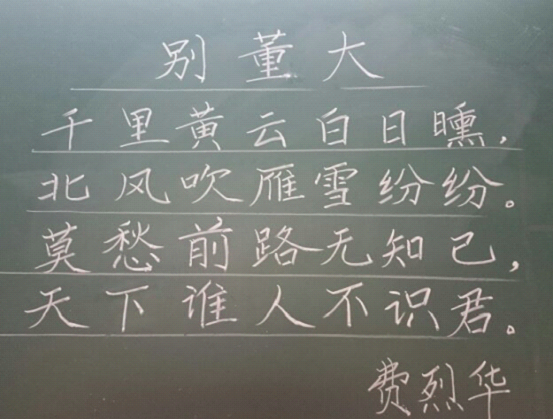 别董大
千里黄云白日曛，
北风吹雁雪纷纷。
莫愁前路无知己，
天下谁人不识君。
费烈华